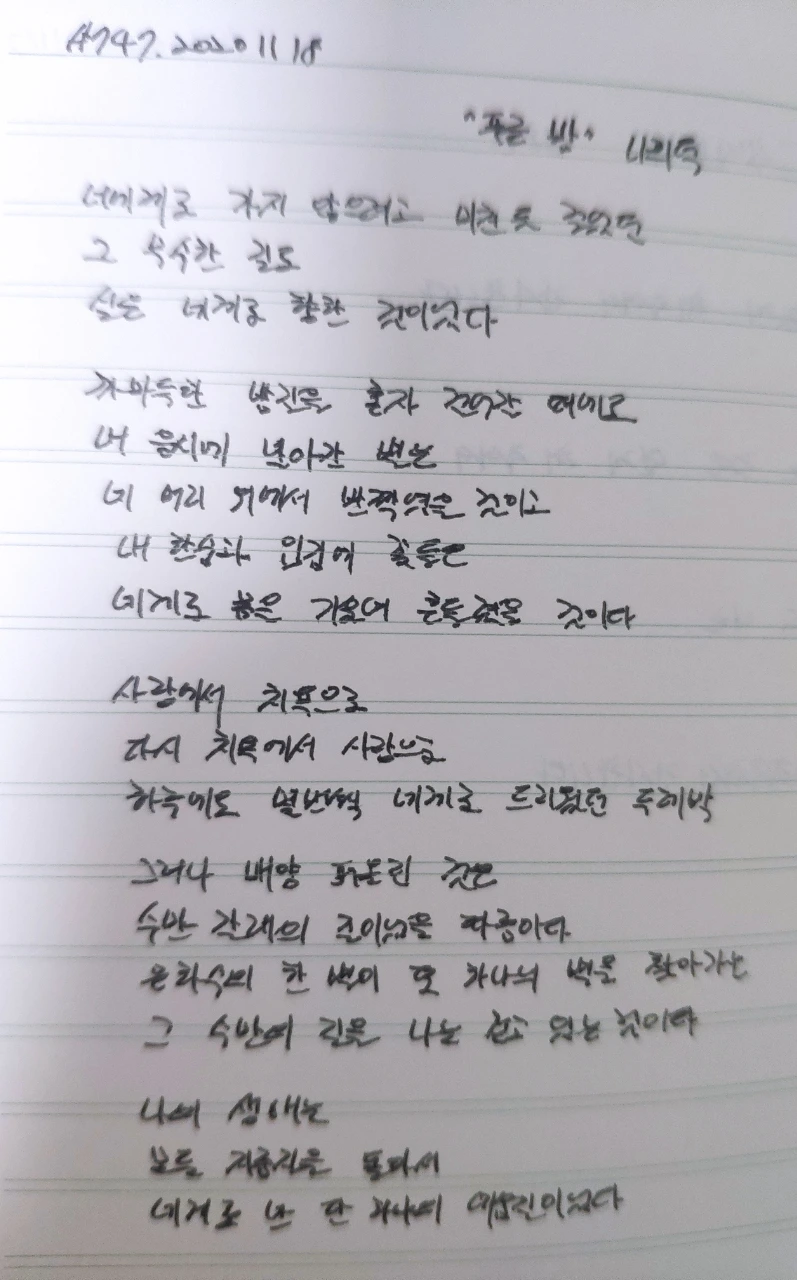 #747. 2020 11 18
"푸른 밤" 나희덕
너에게로 가지 않으려고 미친 듯 걸었던
그 무수한 길도
실은 네게로 향한 것이었다
까마득한 밤길을 혼자 걸어갈 때에도
내 응시에 날아간 별은
네 머리 위에서 반짝였을 것이고
내 한숨과 입김에 꽃들은
네게로 몸을 기울여 흔들렸을 것이다
사랑에서 치욕으로
다시 치욕에서 사랑으로
하루에도 열번씩 네게로 드리웠던 두레박
그러나 매양 퍼올린 것은
수만 갈래의 길이었을 따름이다
은하수의 한 별이 또 하나의 별을 찾아가는
그 수만의 길을 나는 걷고 있는 것이다
나의 생애는
모든 지름길을 돌아서
네게로 난 단 하나의 에움길이었다